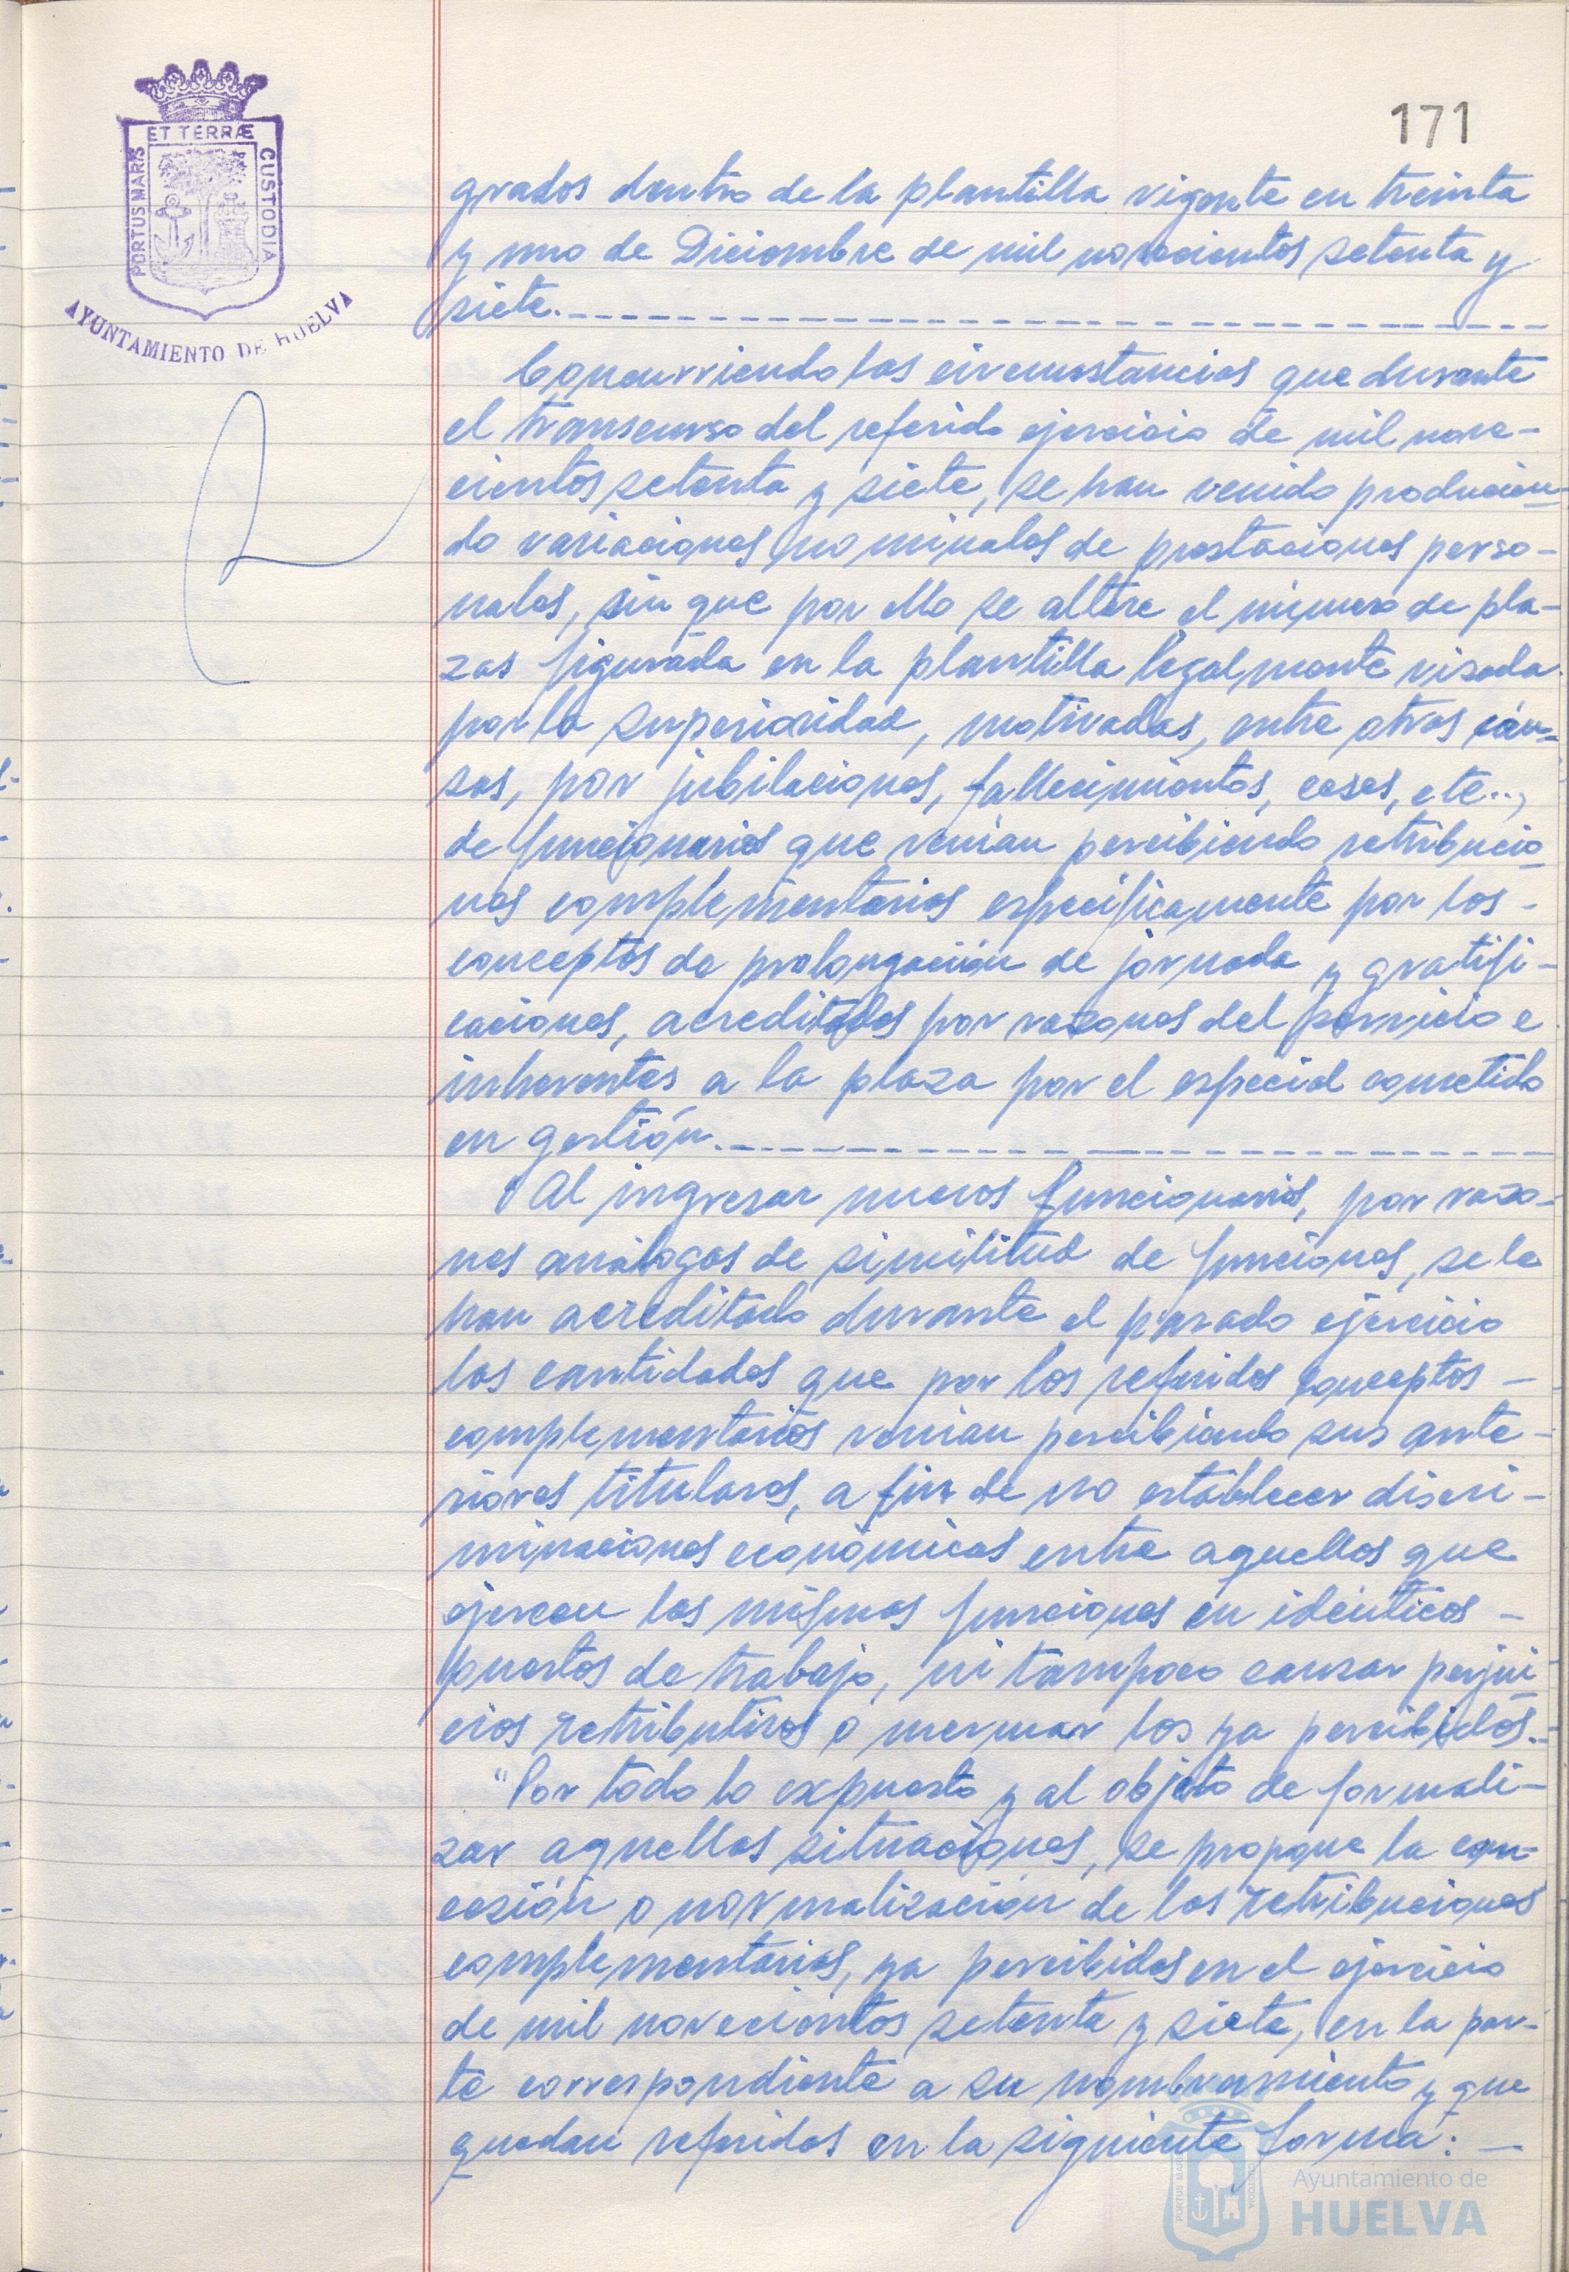 171
ET TERRÆ
PORTUS MARIS
CUSTODIA
AYUNTAMIENTO DE HUELVA
grados dentro de la plantilla vigente en treinta
y uno de Diciembre de mil novecientos setenta y
siete.
Concurriendo las circunstancias que durante
el transcurso del referido ejercicio de mil nove-
cientos setenta y siete, se han venido producien-
do variaciones nominales de prestaciones perso-
nales, sin que por ello se altere el número de pla-
zas figurada en la plantilla legalmente visada
por la superioridad, motivadas, entre otras cau-
sas, por jubilaciones, fallecimientos, ceses, etc..,
de funcionarios que venian percibiendo retribucio-
nes complementarias especificamente por los -
conceptos de prolongación de jornada y gratifi-
caciones, acreditadas por razones del servicio e
inherentes a la plaza por el especial cometido
en gestión.
"Al ingresar nuevos funcionarios, por razo-
nes análogas de similitud de funciones, se le
han acreditado durante el pasado ejercicio
las cantidades que por los referidos conceptos -
complementarios venian percibiendo sus ante-
riores titulares, a fin de no establecer discri-
minaciones económicas entre aquellos que
ejercen las mismas funciones en idénticos -
puestos de trabajo, ni tampoco causar perjui-
cios retributivos o mermar los ya percibidos.-
"Por todo lo expuesto y al objeto de formali-
zar aquellas situaciones, se propone la con-
cesión o normalización de las retribuciones
complementarias, ya percibidas en el ejercicio
de mil novecientos setenta y siete, en la par-
te correspondiente a su nombramiento y que
quedan referidas en la siguiente forma: -
Ayuntamiento de
HUELVA